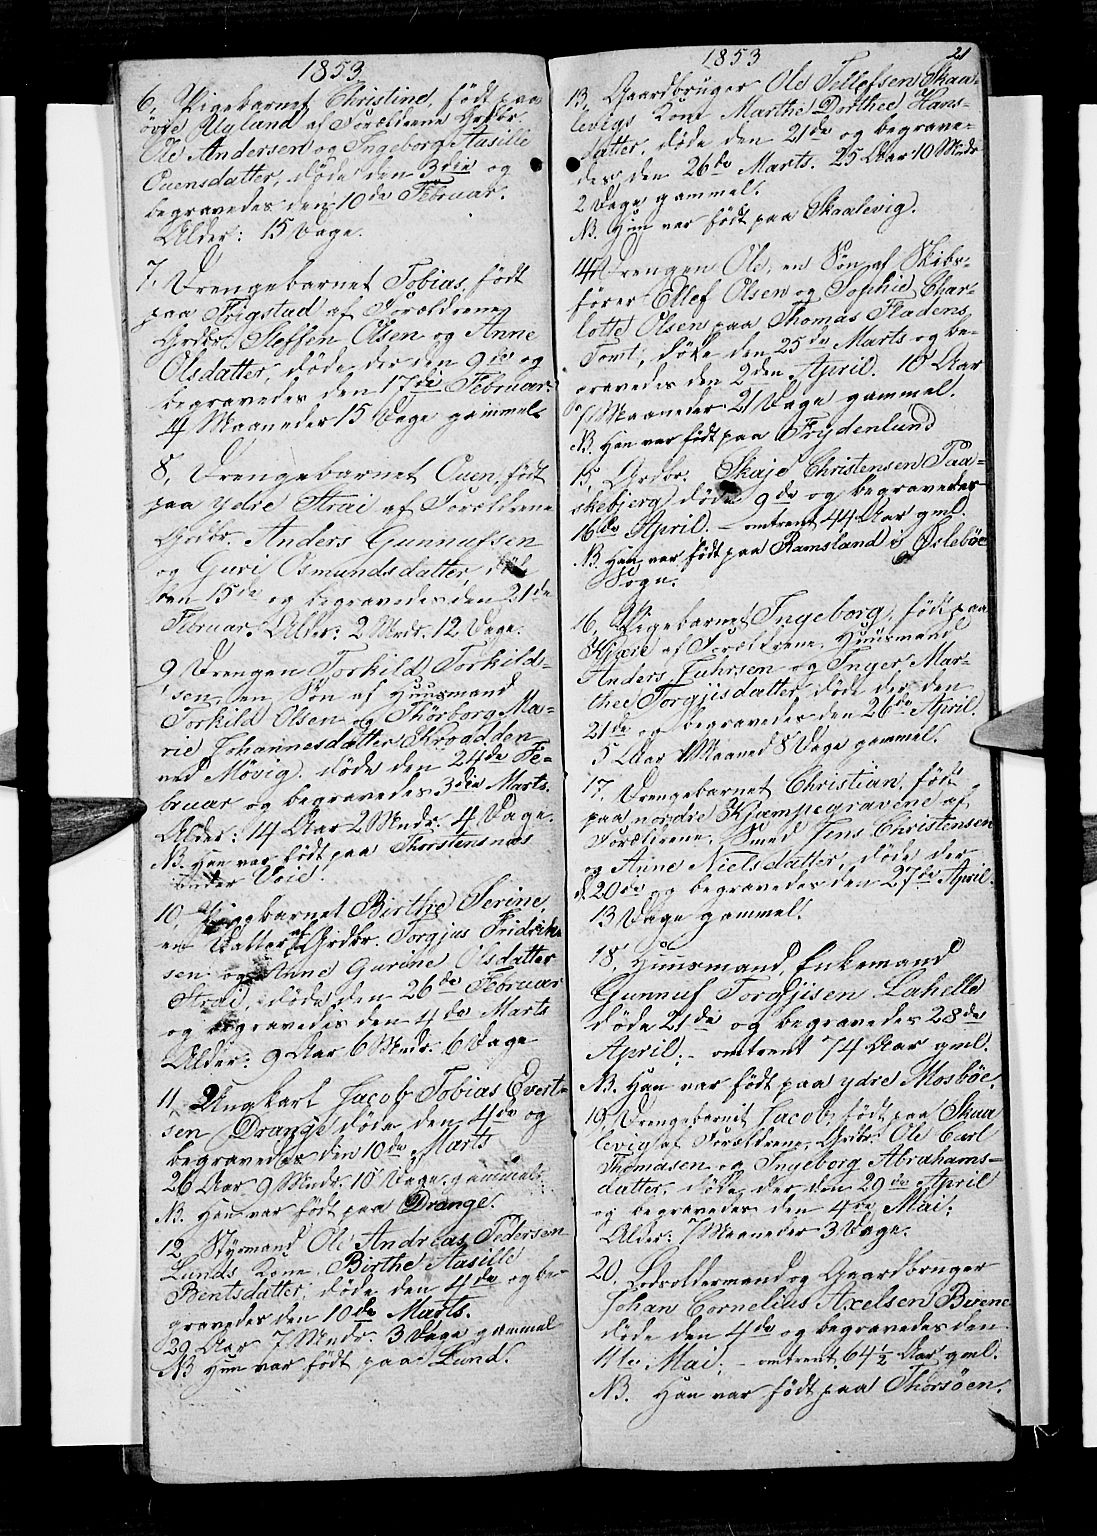 1853
6, Pigebarnet Christine, født paa
øvre Uyland af Forældrene Grdbr.
Ole Andersen og Ingeborg Aasille
Ouensdatter, døde den 3die og
begravedes den 10de Februar.
Alder: 15 Dage.
7, Drengebarnet Tobias, født
paa Frigstad af Forældrene
Grdbr. Steffen Olsen og Anne
Olsdatter, døde der den 9de og
begravedes den 17de Februar.
4 Maaneder 15 Dage gammel
8, Drengebarnet Ouen, født
paa ydre Strai af Forældrene
Grdbr. Anders Gunnufsen
og Guri Osmundsdatter, døde
den 15de og begravedes den 21de
Februar. Alder: 2 Mndr. 12 Dage.
9 Drengen Torkild Torkild-
sen, en Søn af Huusmand
Torkild Olsen og Thorborg Ma-
rie Johannesdatter Kroodden
ved Møvig. døde den 24de Fe-
bruar og begravedes 3die Marts.
Alder: 14 Aar 2 Mndr. 4 Dage.
NB. Han var født paa Thorstensnæs
under Voie.
10, Pigebarnet Birthe Serine,
en Datter af Grdbr. Torgjus Fridrik-
sen og Anne Gurine Olsdatter
Strai, døde den 26de Februar
og begravedes den 4de Marts
Alder: 9 Aar 6 Mndr. 6 Dage
11, Ungkarl Jacob Tobias Evert-
sen Drange døde den 4de og
begravedes den 10de Marts
26 Aar 9 Mndr. 10 Dage gammel.
NB. Han var født paa Drange.
12, Styrmand Ole Andreas Pedersen
Lunds Kone Birthe Aasille
Bentsdatter, døde den 4de og be-
gravedes den 10de Marts.
29 Aar 7 Mndr. 3 Dage gammel
NB Hun var født paa Lund.
1853
21
13, Gaardbruger Ole Tellefsen Skaa-
levigs Kone Marthe Dorthee Hans-
datter, døde den 21de og begrave-
des den 26de Marts. 25 Aar 10 Mndr
2 Dage gammel.
NB. Hun var født paa Skaalevig.
14, Drengen Ole, en Søn af Skibs-
fører Ellef Olsen og Sophie Char-
lotte Olsen paa Thomas Fladens
Tomt, døde den 25de Marts og be-
gravedes den 2den April. 10 Aar
7 Maaneder 21 Dage gammel.
NB. Han var født paa Frydenlund
15, Grdbr. Skaje Christensen Paa-
skebjerg døde 9de og begravedes
16de April. - omtrent 44 Aar gml.
NB. Han var født paa Ramsland i Øslebøe
Sogn.
16, Pigebarnet Ingeborg, født paa
Kjære af Forældrene Huusmand
Anders Fuhrsen og Inger Mar-
thee Torgjisdatter, døde der den
21de og begravedes den 26de April.
5 Aar 1 Maaned 8 Dage gammel.
17, Drengebarnet Christian, født
paa nordre Kjæmpegravene af
Forældrene Smed Jens Christensen
og Anne Nielsdatter, døde der
d. 20de og begravedes den 27de April.
13 Dage gammel.
18, Huusmand, Enkemand
Gunnuf Torgjisen Lahelle
døde 21de og begravedes 28de
April. - omtrent 74 Aar gml.
NB. Han var født paa ydre Mosbøe.
19, Drengebarnet Jacob, født paa Skaa
levig af Forældrene Grdbr. Ole Carl
Thomasen og Ingeborg Abrahams-
datter, døde der den 29de April
og begravedes den 4de Mai.
Alder: 7 Maaneder 3 Dage.
20, Lodsoldermand og Gaardbruger
Johan Cornelius Axelsen Birene
døde den 4de og begravedes den
11te Mai. - omtrent 64 1/2 Aar gml.
NB. Han var født paa Thorsøen.